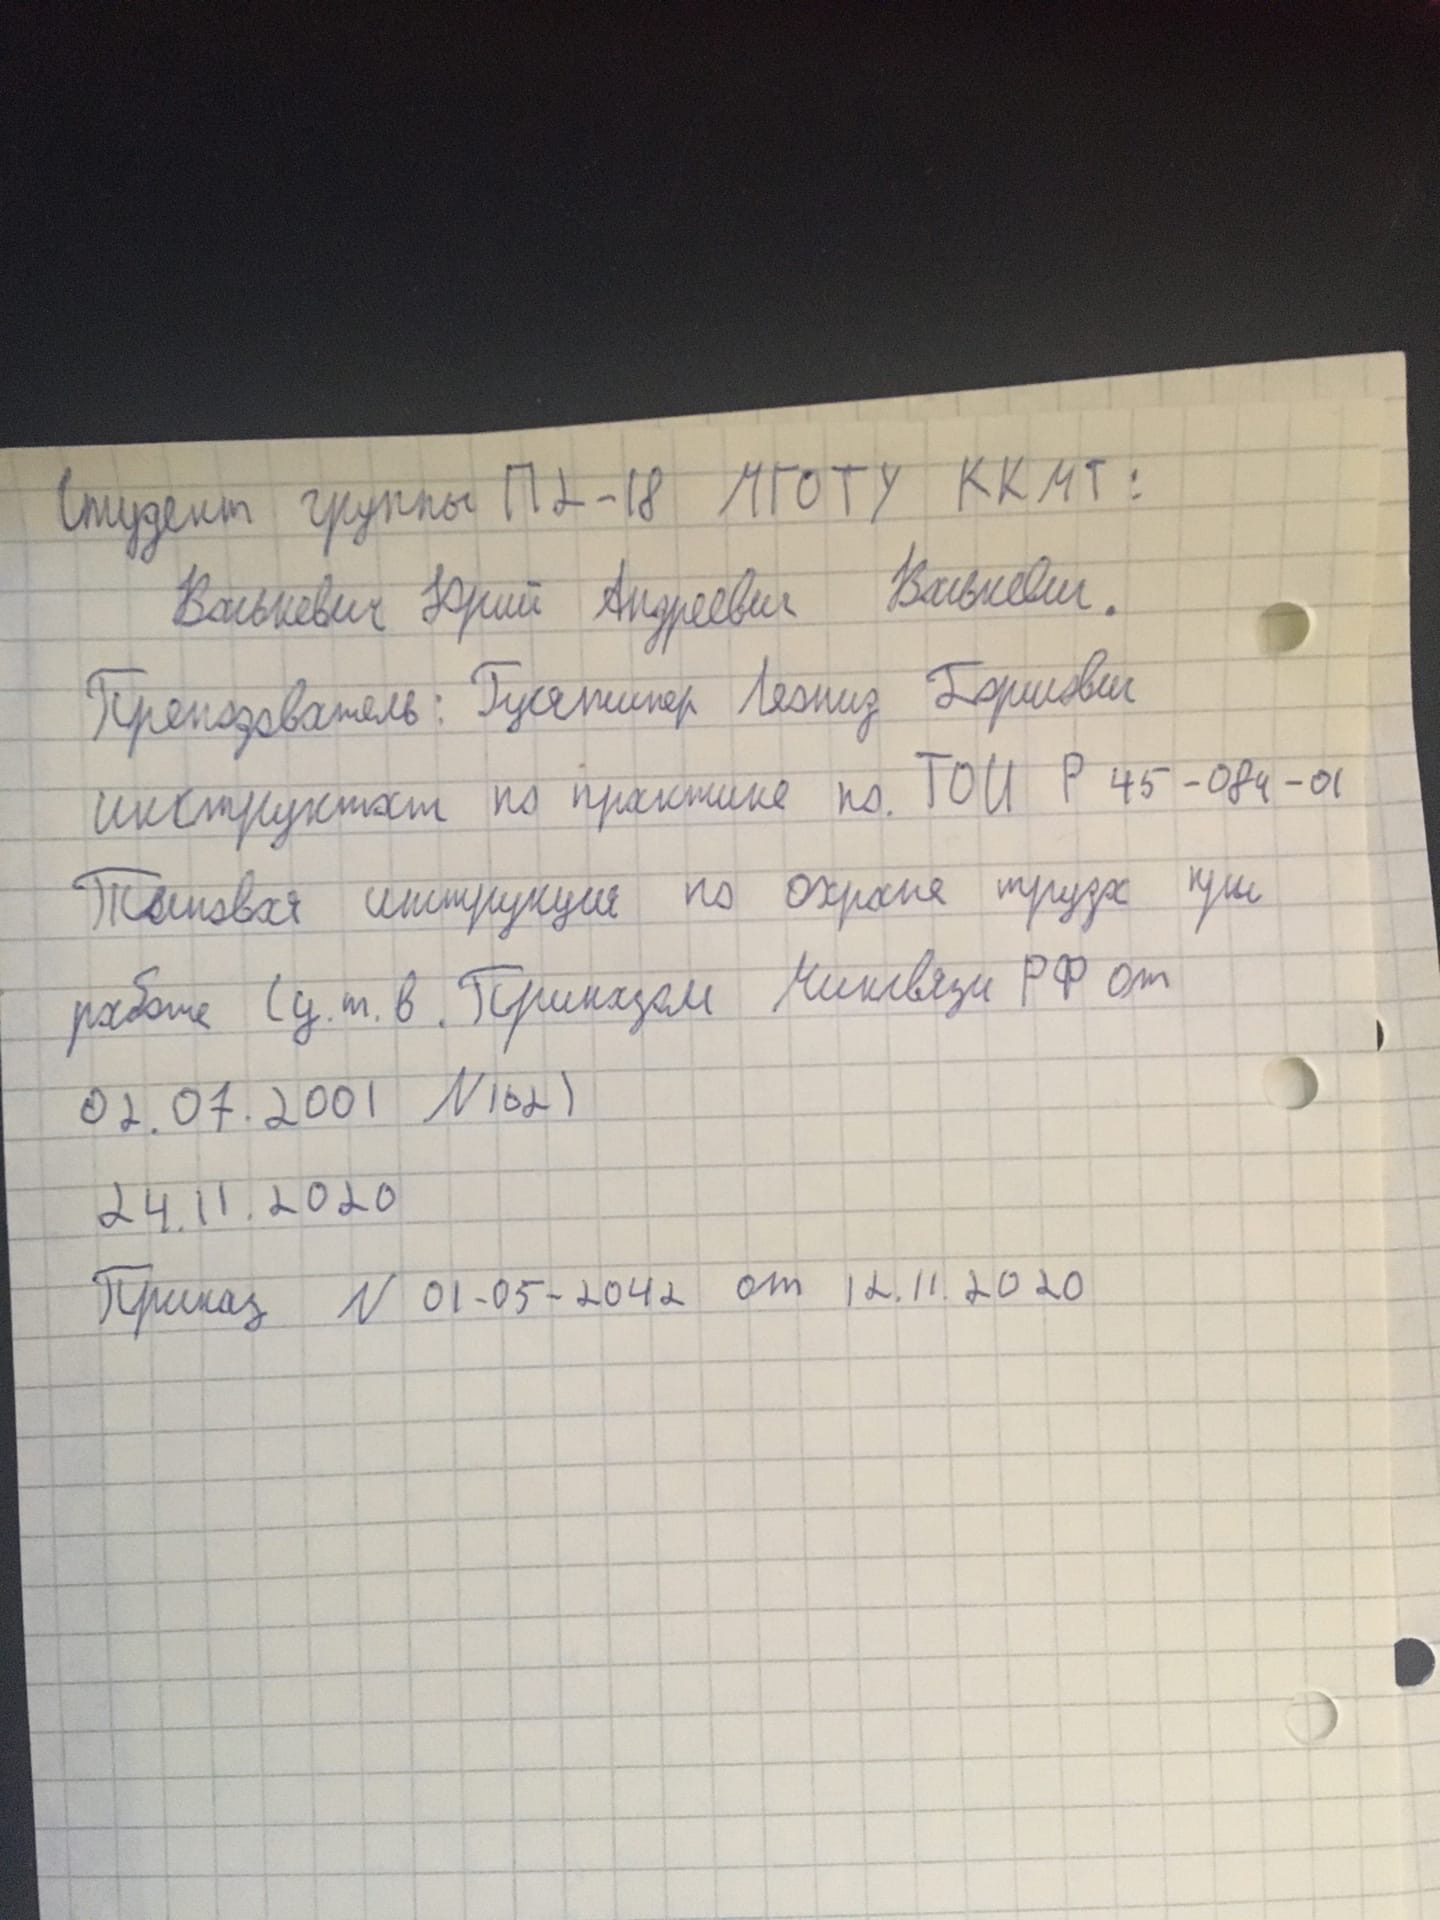 Студент группы П2-18 МГОТУ ККМТ:
Валькевич Юрий Андреевич Валькевич.
Преподаватель: Гусятинер Леонид Борисович
инструктаж по практике по. ТОИ Р 45-084-01
Типовая инструкция по охране труда при
работе (у.т.в. Приказом Минсвязи РФ от
02.07.2001 N162)
24.11.2020
Приказ N 01-05-2042 от 12.11.2020